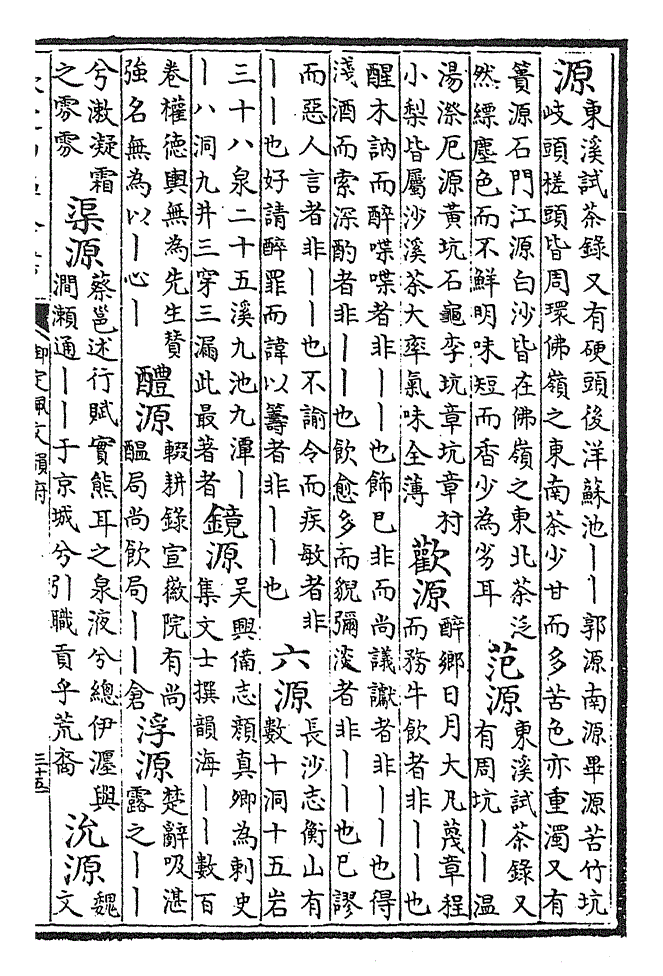 源東溪試茶錄又有硬頭後洋蘇池〡〡郭源南源畢源苦竹坑
岐頭槎頭皆周環佛嶺之東南茶少甘而多苦色亦重濁又有
簣源石門江源白沙皆在佛嶺之東北茶泛
然縹塵色而不鮮明味短而香少為劣耳
范源東溪試茶錄又
有周坑〡〡温
湯漈厄源黃坑石龜李坑章坑章村
小梨皆屬沙溪茶大率氣味全薄
歡源醉鄉日月大凡蔑章程
而務牛飲者非〡〡也
醒木訥而醉喋喋者非〡〡也飾已非而尚議讞者非〡〡也得
淺酒而索深酌者非〡〡也飲愈多而貌彌淡者非〡〡也已謬
而惡人言者非〡〡也不諭令而疾敏者非
〡〡也好請醉罪而諱以籌者非〡〡也
六源長沙志衡山有
數十洞十五岩
三十八泉二十五溪九池九潭〡
〡八洞九井三穿三漏此最著者
鏡源吳興備志顏真卿為刺史
集文士撰韻海〡〡數百
卷權德輿無為先生贊
強名無為以〡心〡
醴源輟耕錄宣徽院有尚
醖局尚飲局〡〡倉
浮源楚辭吸湛
露之〡〡
兮漱凝霜
之雰雰
渠源蔡邕述行賦實熊耳之泉液兮總伊瀍與
澗瀨通〡〡于京城兮引職貢乎荒裔
沇源魏
文
御定佩文韻府
三十五